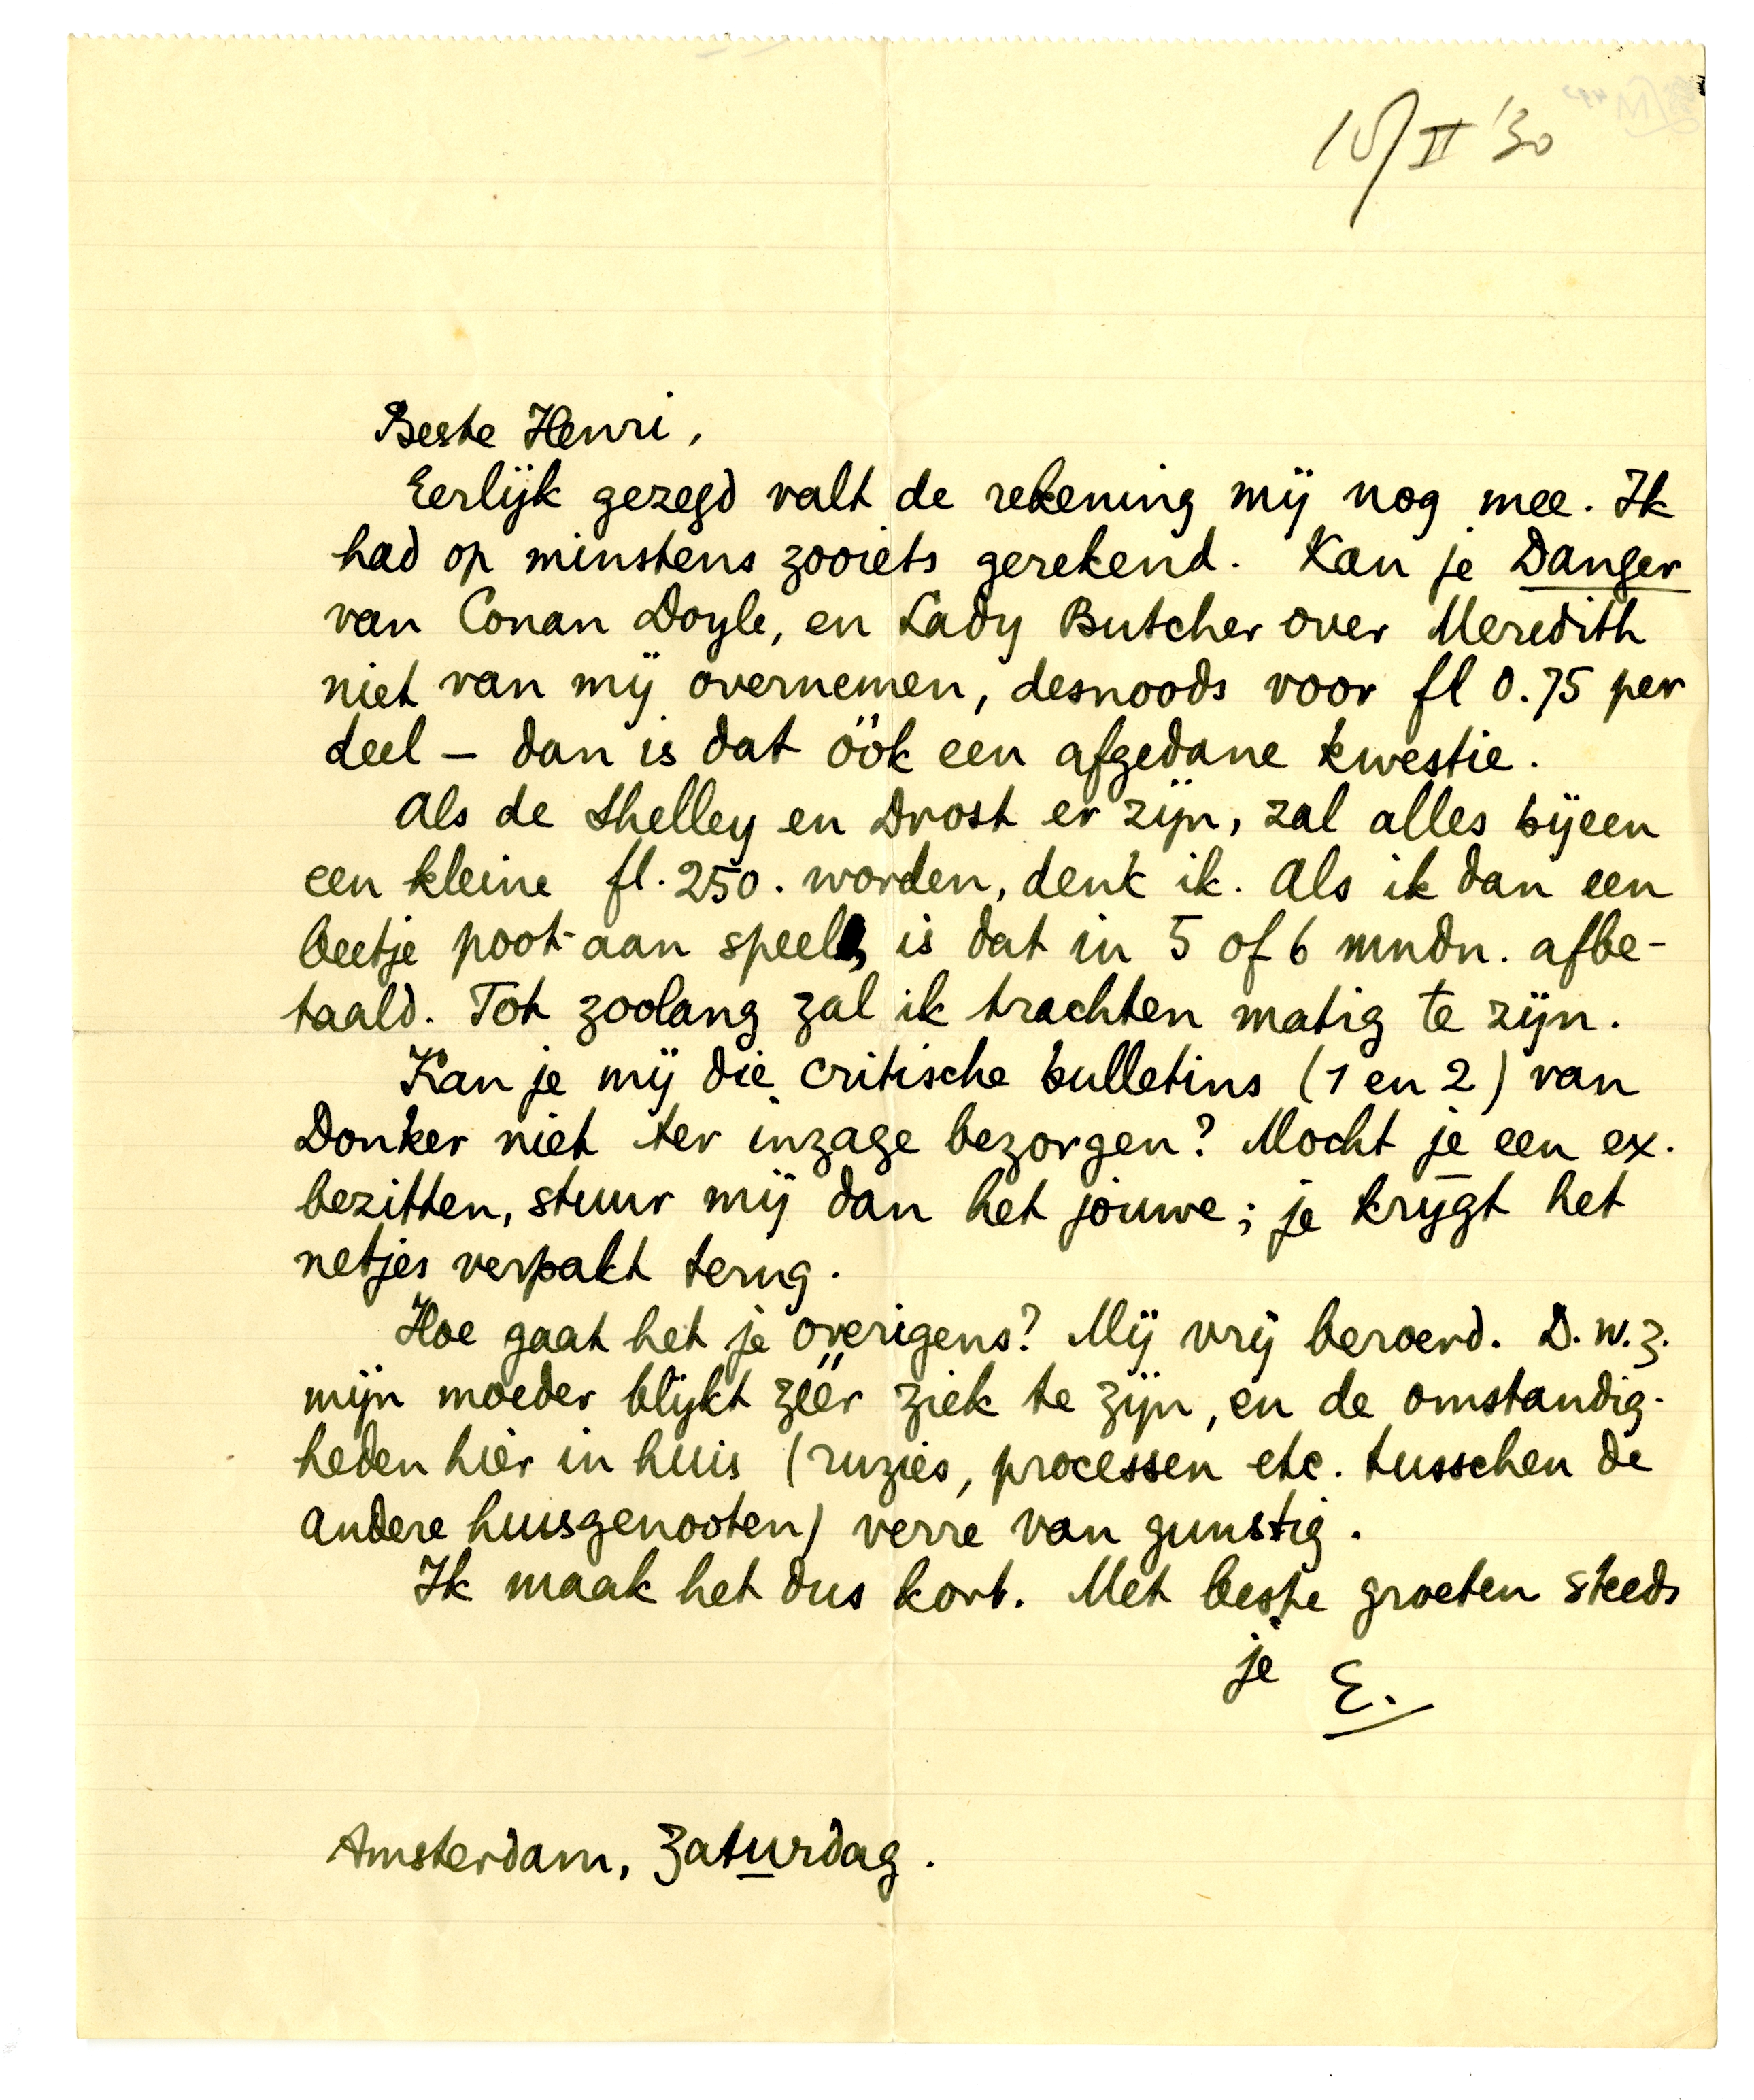 15/II '30
Beste Henri,
Eerlijk gezegd valt de rekening mij nog mee. Ik
had op minstens zooiets gerekend. Kan je Danger
van Conan Doyle, en Lady Butcher over Meredith
niet van mij overnemen, desnoods voor fl 0.75 per
deel – dan is dat óók een afgedane kwestie.
Als de Shelley en Drost er zijn, zal alles bijeen
een kleine fl. 250. worden, denk ik. Als ik dan een
beetje poot-aan speel, is dat in 5 of 6 mndn. afbe-
taald. Tot zoolang zal ik trachten matig te zijn.
Kan je mij die critische bulletins (1 en 2) van
Donker niet ter inzage bezorgen? Mocht je een ex.
bezitten, stuur mij dan het jouwe; je krijgt het
netjes verpakt terug.
Hoe gaat het je overigens? Mij vrij beroerd. D.w.z.
mijn moeder blijkt zéér ziek te zijn, en de omstandig-
heden hier in huis (ruzies, processen etc. tusschen de
andere huisgenooten) verre van gunstig.
Ik maak het dus kort. Met beste groeten steeds
je E.
Amsterdam, Zaturdag.